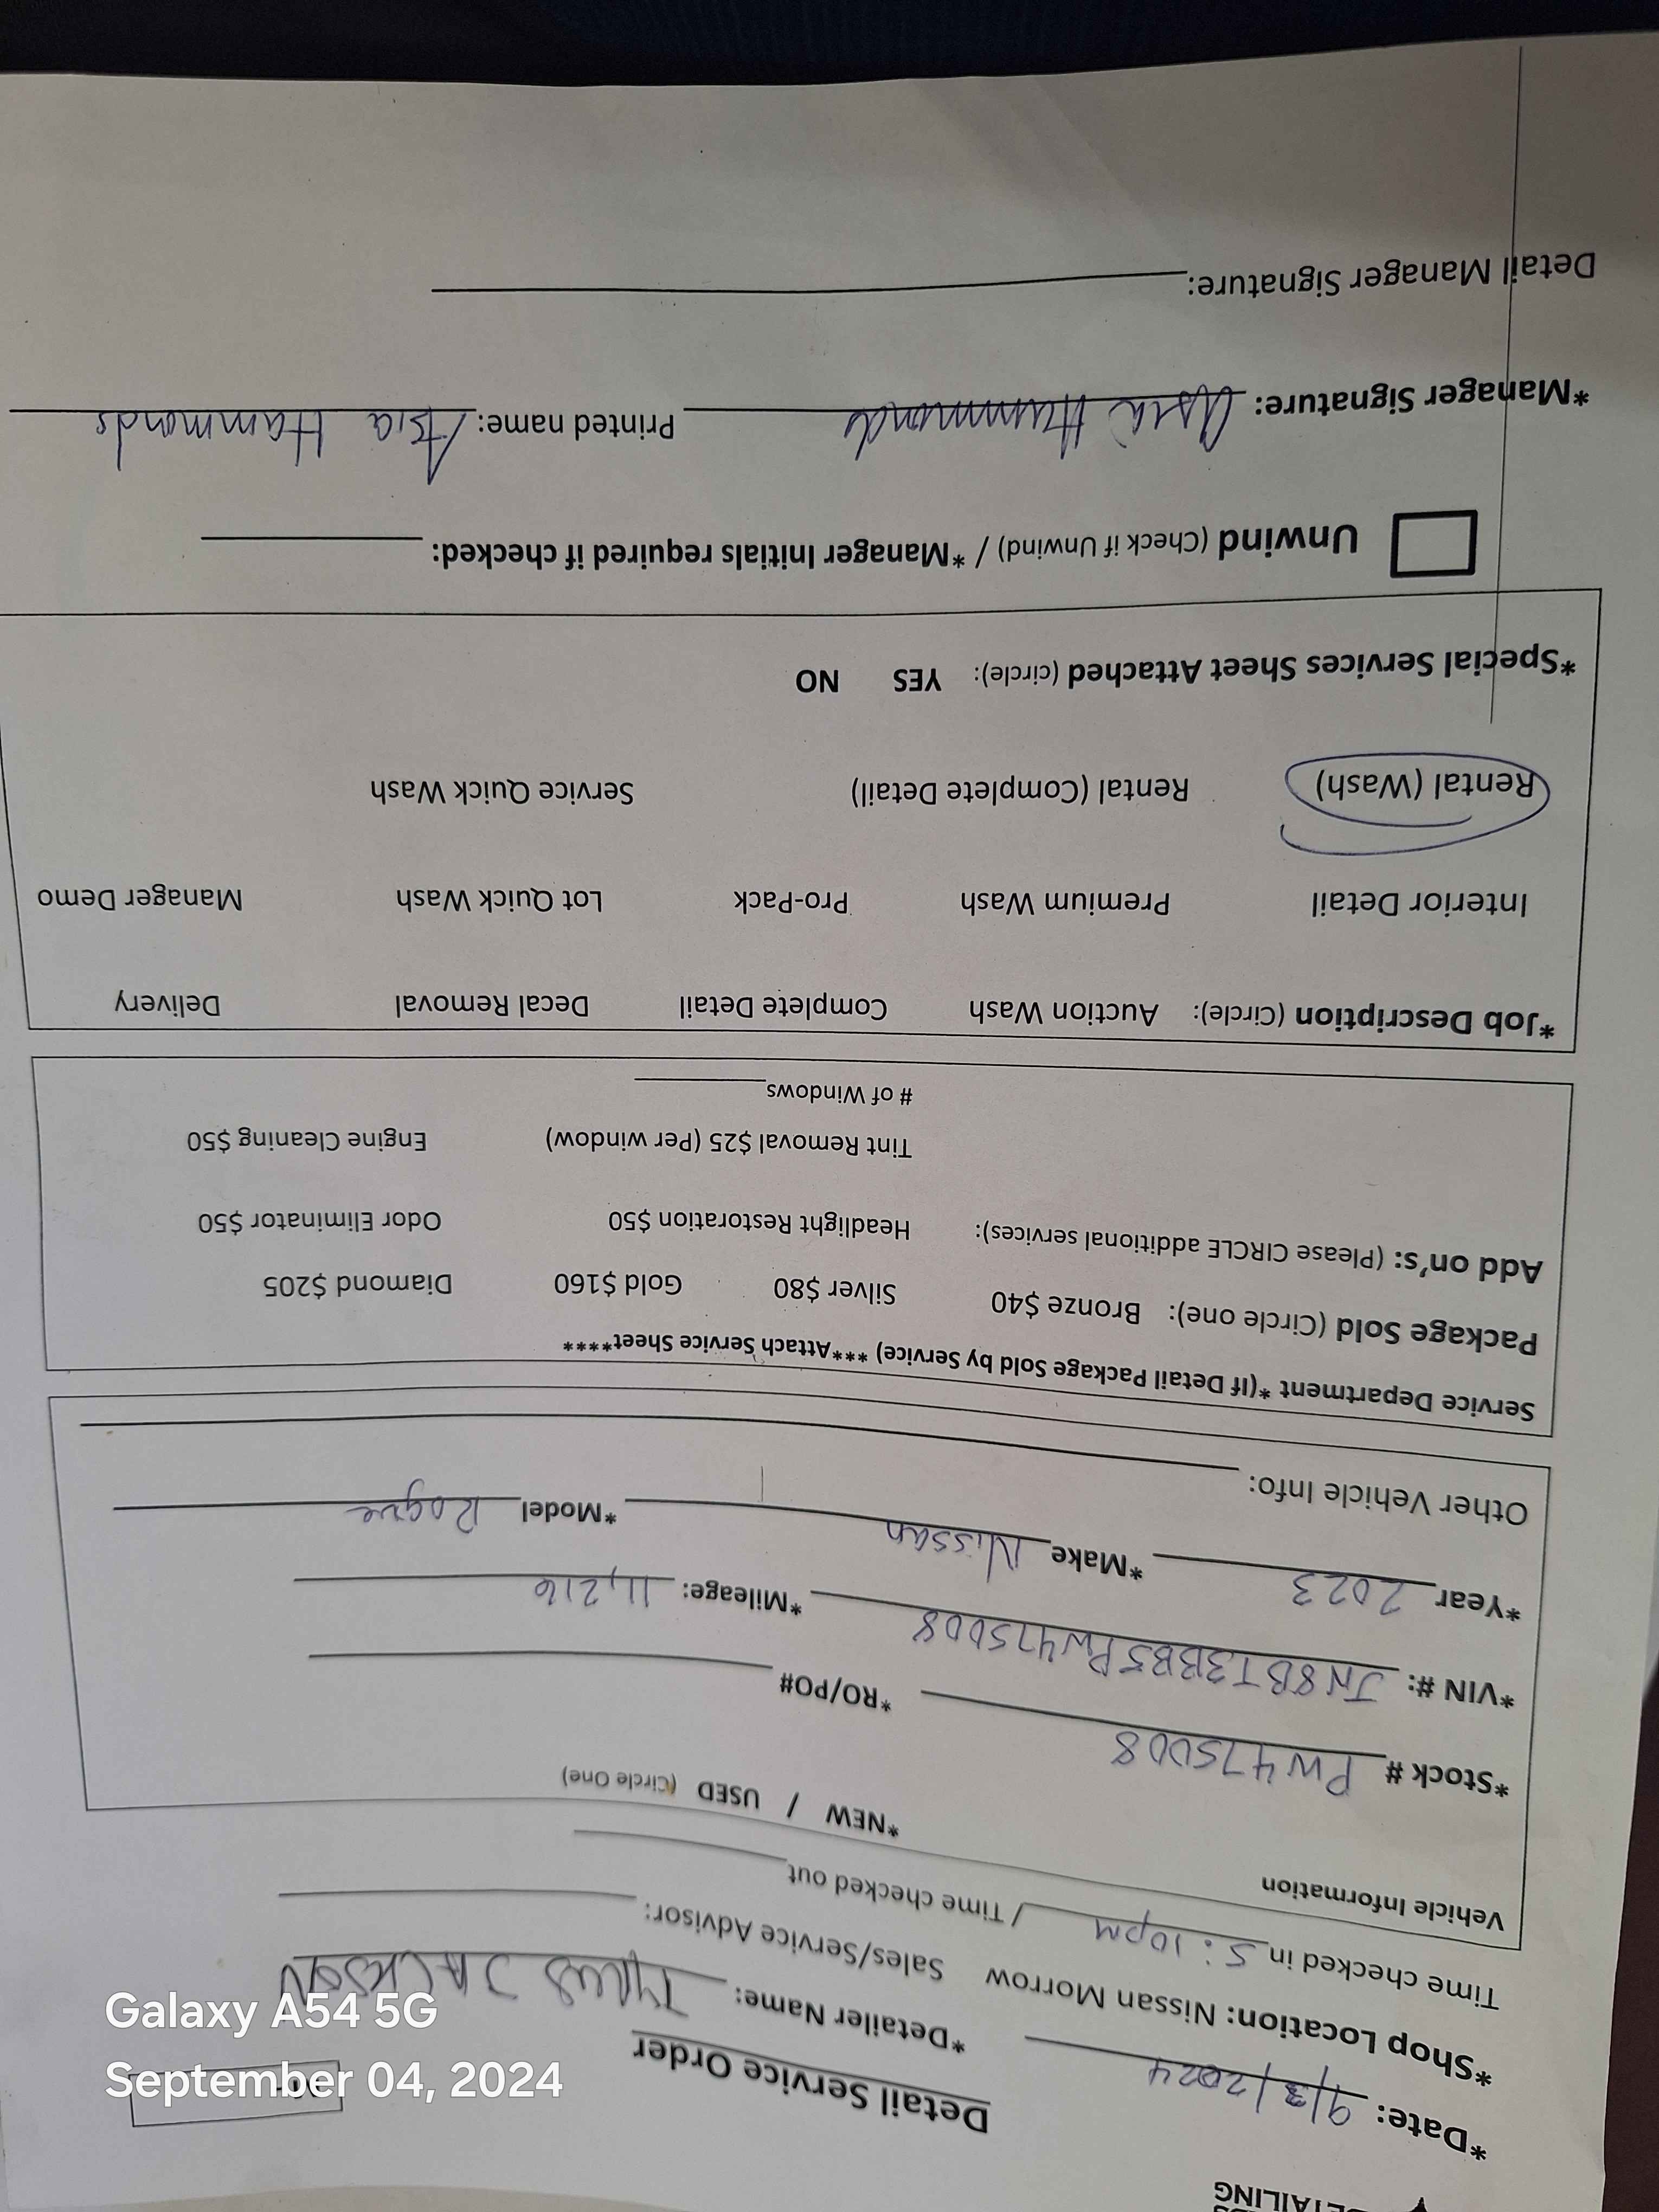 DETAILING
Detail Service Order
*Date: 9/3/2024 *Detailer Name: JACKSON
*Shop Location: Nissan Morrow Sales/Service Advisor:
Time checked in 5:10pm / Time checked out
Vehicle Information *NEW / USED (Circle One)
*Stock # PW475008 *RO/PO#
*VIN #: JN8BT3BB5PW475008 *Mileage: 11,216
*Year 2023 *Make Nissan *Model Rogue
Other Vehicle Info:
Service Department *(If Detail Package Sold by Service) ***Attach Service Sheet****
Package Sold (Circle one): Bronze $40 Silver $80 Gold $160 Diamond $205
Add on's: (Please CIRCLE additional services): Headlight Restoration $50 Odor Eliminator $50
Tint Removal $25 (Per window) Engine Cleaning $50
# of Windows
*Job Description (Circle): Auction Wash Complete Detail Decal Removal Delivery
Interior Detail Premium Wash Pro-Pack Lot Quick Wash Manager Demo
Rental (Wash) Rental (Complete Detail) Service Quick Wash
*Special Services Sheet Attached (circle): YES NO
Unwind (Check if Unwind) / *Manager Initials required if checked:
*Manager Signature: Asia Hammonds Printed name: Asia Hammonds
Detail Manager Signature:
Galaxy A54 5G
September 04, 2024